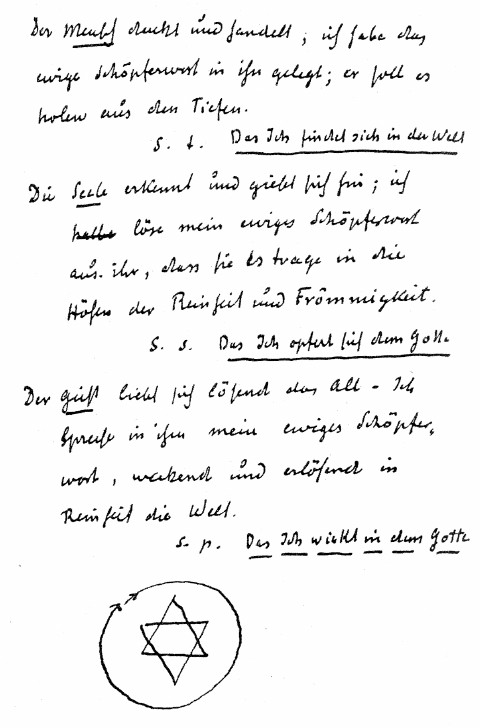 Der Mensch denkt und handelt; ich habe das
ewige Schöpferwort in ihn gelegt; er soll es
holen aus den Tiefen.
S. t. Das Ich findet sich in der Welt
Die Seele erkennt und giebt sich hin; ich
löse mein ewiges Schöpferwort
aus ihr, dass sie Es trage in die
Höhen der Reinheit und Frömmigkeit.
S. s. Das Ich opfert sich dem Gotte
Der Geist liebt sich lösend das All – Ich
Spreche in ihm mein ewiges Schöpfer-
wort, weckend und erlösend in
Reinheit die Welt.
s. p. Das Ich wirkt in dem Gotte